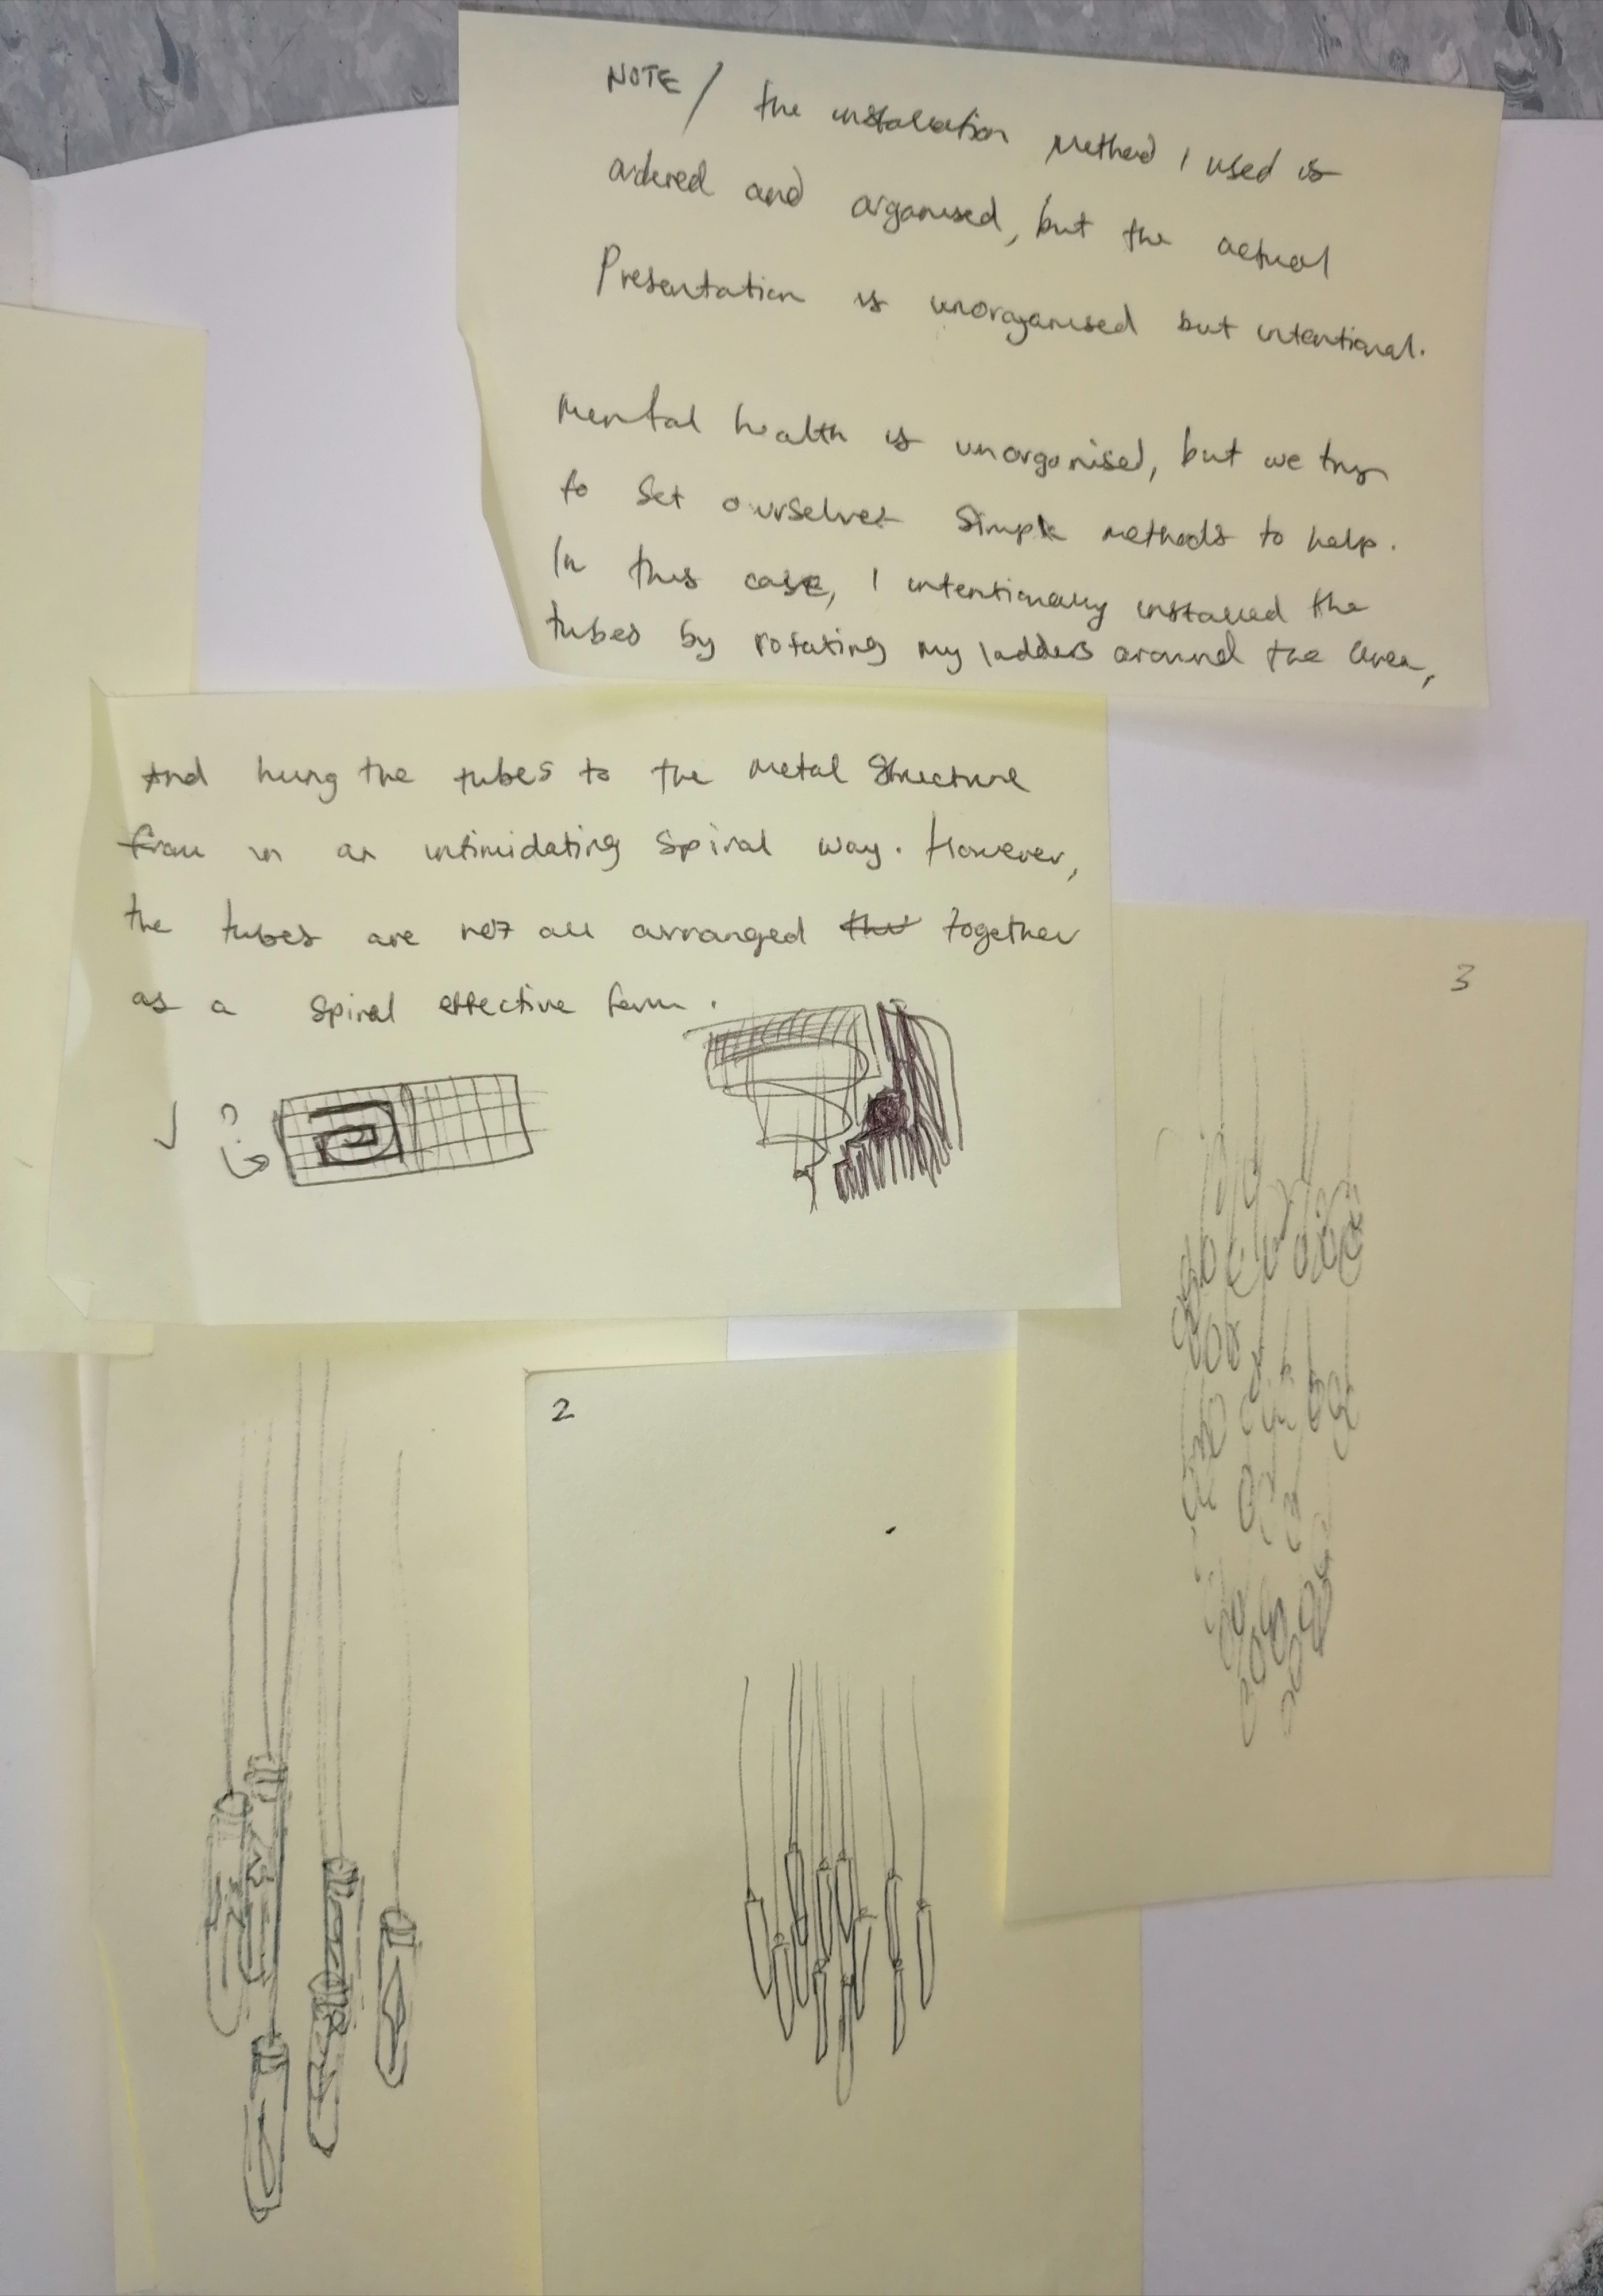 NOTE / the installation Method I used is
ordered and organised, but the actual
Presentation is unorganised but intentional.
Mental health is unorganised, but we try
to set ourselves simple methods to help.
In this case, I intentionally installed the
tubes by rotating my ladders around the area,
And hung the tubes to the metal structure
from in an intimidating spiral way. However,
the tubes are not all arranged the together
as a spiral effective form.
3
2